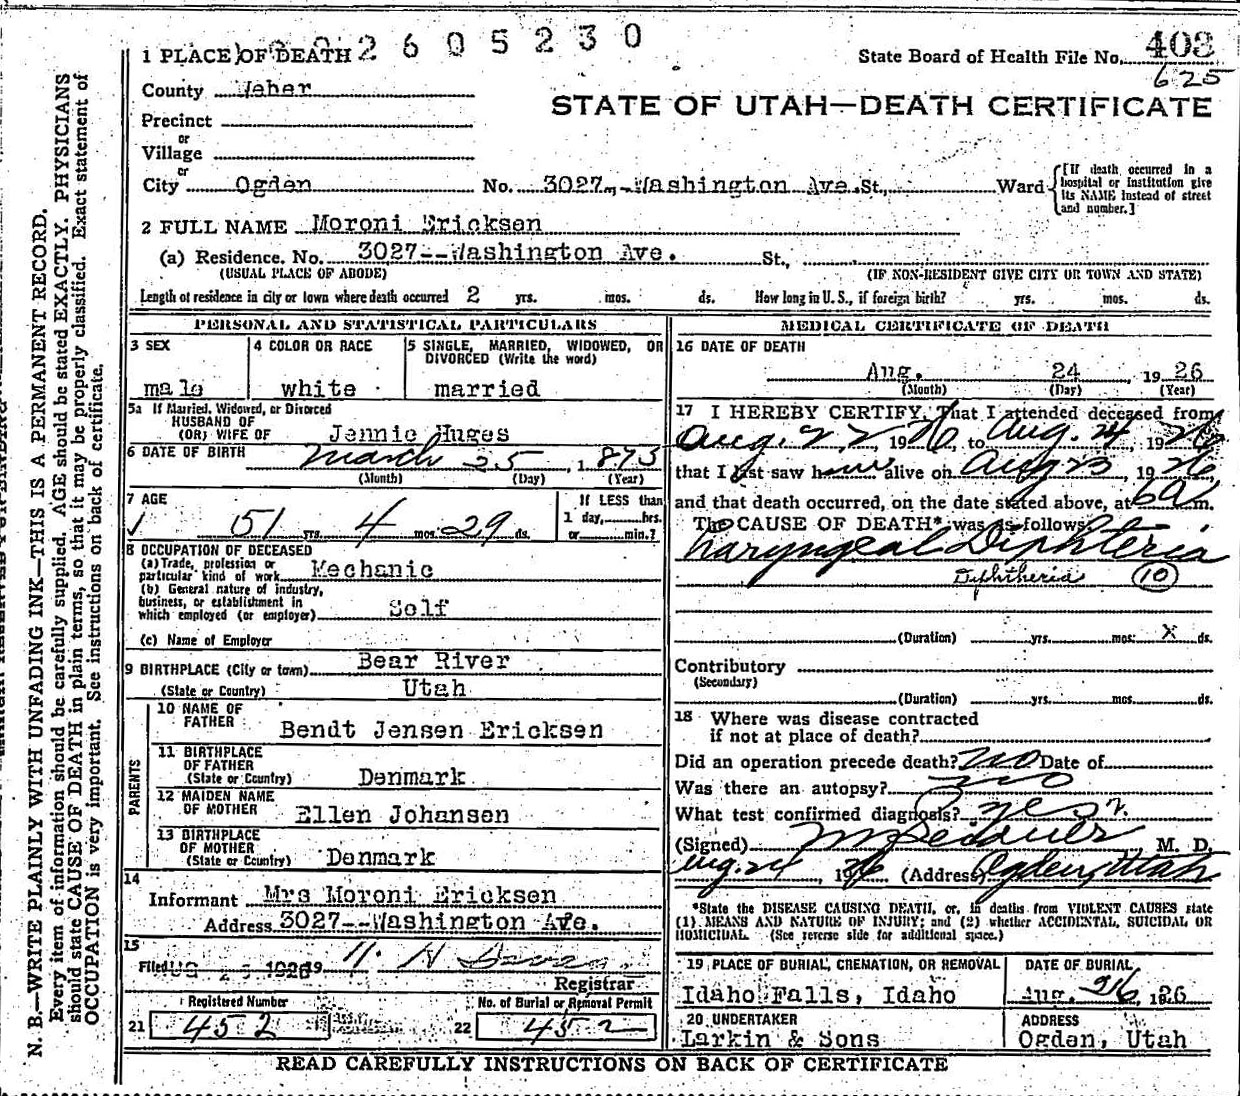 2 6 0 5 2 3 0
1 PLACE OF DEATH
State Board of Health File No. 403
625
County Weber
STATE OF UTAH—DEATH CERTIFICATE
Precinct
or
Village
or
City Ogden No. 3027--Washington Ave. St., Ward
[If death occurred in a hospital or institution give its NAME instead of street and number.]
2 FULL NAME Moroni Ericksen
(a) Residence, No. 3027--Washington Ave. St.,
(USUAL PLACE OF ABODE) (IF NON-RESIDENT GIVE CITY OR TOWN AND STATE)
Length of residence in city or town where death occurred 2 yrs. mos. ds. How long in U. S., if foreign birth? yrs. mos. ds.
PERSONAL AND STATISTICAL PARTICULARS
3 SEX
male
4 COLOR OR RACE
white
5 SINGLE, MARRIED, WIDOWED, OR
DIVORCED (Write the word)
married
5a If Married, Widowed, or Divorced
HUSBAND OF
(OR) WIFE OF Jennie Huges
6 DATE OF BIRTH March 25, 1873
(Month) (Day) (Year)
7 AGE
51 yrs. 4 mos. 29 ds.
If LESS than
1 day, hrs.
or min.?
8 OCCUPATION OF DECEASED
(a) Trade, profession or
particular kind of work Mechanic
(b) General nature of industry,
business, or establishment in
which employed (or employer) Self
(c) Name of Employer
9 BIRTHPLACE (City or town) Bear River
(State or Country) Utah
PARENTS
10 NAME OF
FATHER Bendt Jensen Ericksen
11 BIRTHPLACE
OF FATHER
(State or Country) Denmark
12 MAIDEN NAME
OF MOTHER Ellen Johansen
13 BIRTHPLACE
OF MOTHER
(State or Country) Denmark
14
Informant Mrs Moroni Ericksen
Address 3027--Washington Ave.
15
Filed AUG 25 1926 19
Registrar
Registered Number
21 452
No. of Burial or Removal Permit
22 452
MEDICAL CERTIFICATE OF DEATH
16 DATE OF DEATH
Aug. 24, 1926
(Month) (Day) (Year)
17 I HEREBY CERTIFY, That I attended deceased from
Aug. 22 1926, to Aug. 24, 1926
that I last saw h alive on Aug 23, 1926
and that death occurred, on the date stated above, at 6 a m.
The CAUSE OF DEATH* was as follows:
Laryngeal Diphteria
Diphtheria (10)
(Duration) yrs. mos. X ds.
Contributory
(Secondary)
(Duration) yrs. mos. ds.
18 Where was disease contracted
if not at place of death?
Did an operation precede death? no Date of
Was there an autopsy? no
What test confirmed diagnosis? yes?
(Signed) M. D.
Aug. 24, 1926 (Address) Ogden, Utah
*State the DISEASE CAUSING DEATH, or, in deaths from VIOLENT CAUSES state
(1) MEANS AND NATURE OF INJURY; and (2) whether ACCIDENTAL, SUICIDAL OR
HOMICIDAL. (See reverse side for additional space.)
19 PLACE OF BURIAL, CREMATION, OR REMOVAL
Idaho Falls, Idaho
DATE OF BURIAL
Aug. 26, 1926
20 UNDERTAKER
Larkin & Sons
ADDRESS
Ogden, Utah
READ CAREFULLY INSTRUCTIONS ON BACK OF CERTIFICATE
N. B.—WRITE PLAINLY WITH UNFADING INK—THIS IS A PERMANENT RECORD.
Every item of information should be carefully supplied. AGE should be stated EXACTLY. PHYSICIANS
should state CAUSE OF DEATH in plain terms, so that it may be properly classified. Exact statement of
OCCUPATION is very important. See instructions on back of certificate.